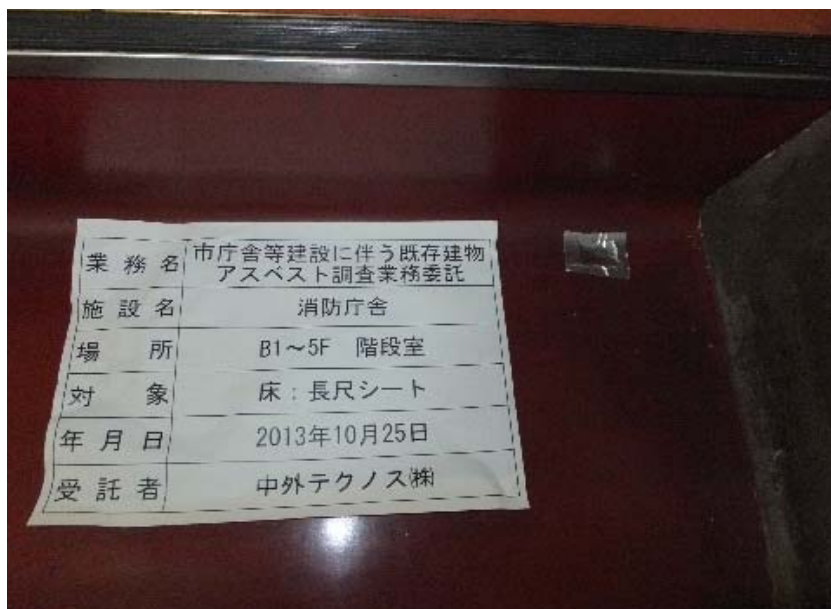 業務名 市庁舎等建設に伴う既存建物
アスベスト調査業務委託
施設名 消防庁舎
場所 B1～5F 階段室
対象 床：長尺シート
年月日 2013年10月25日
受託者 中外テクノス㈱